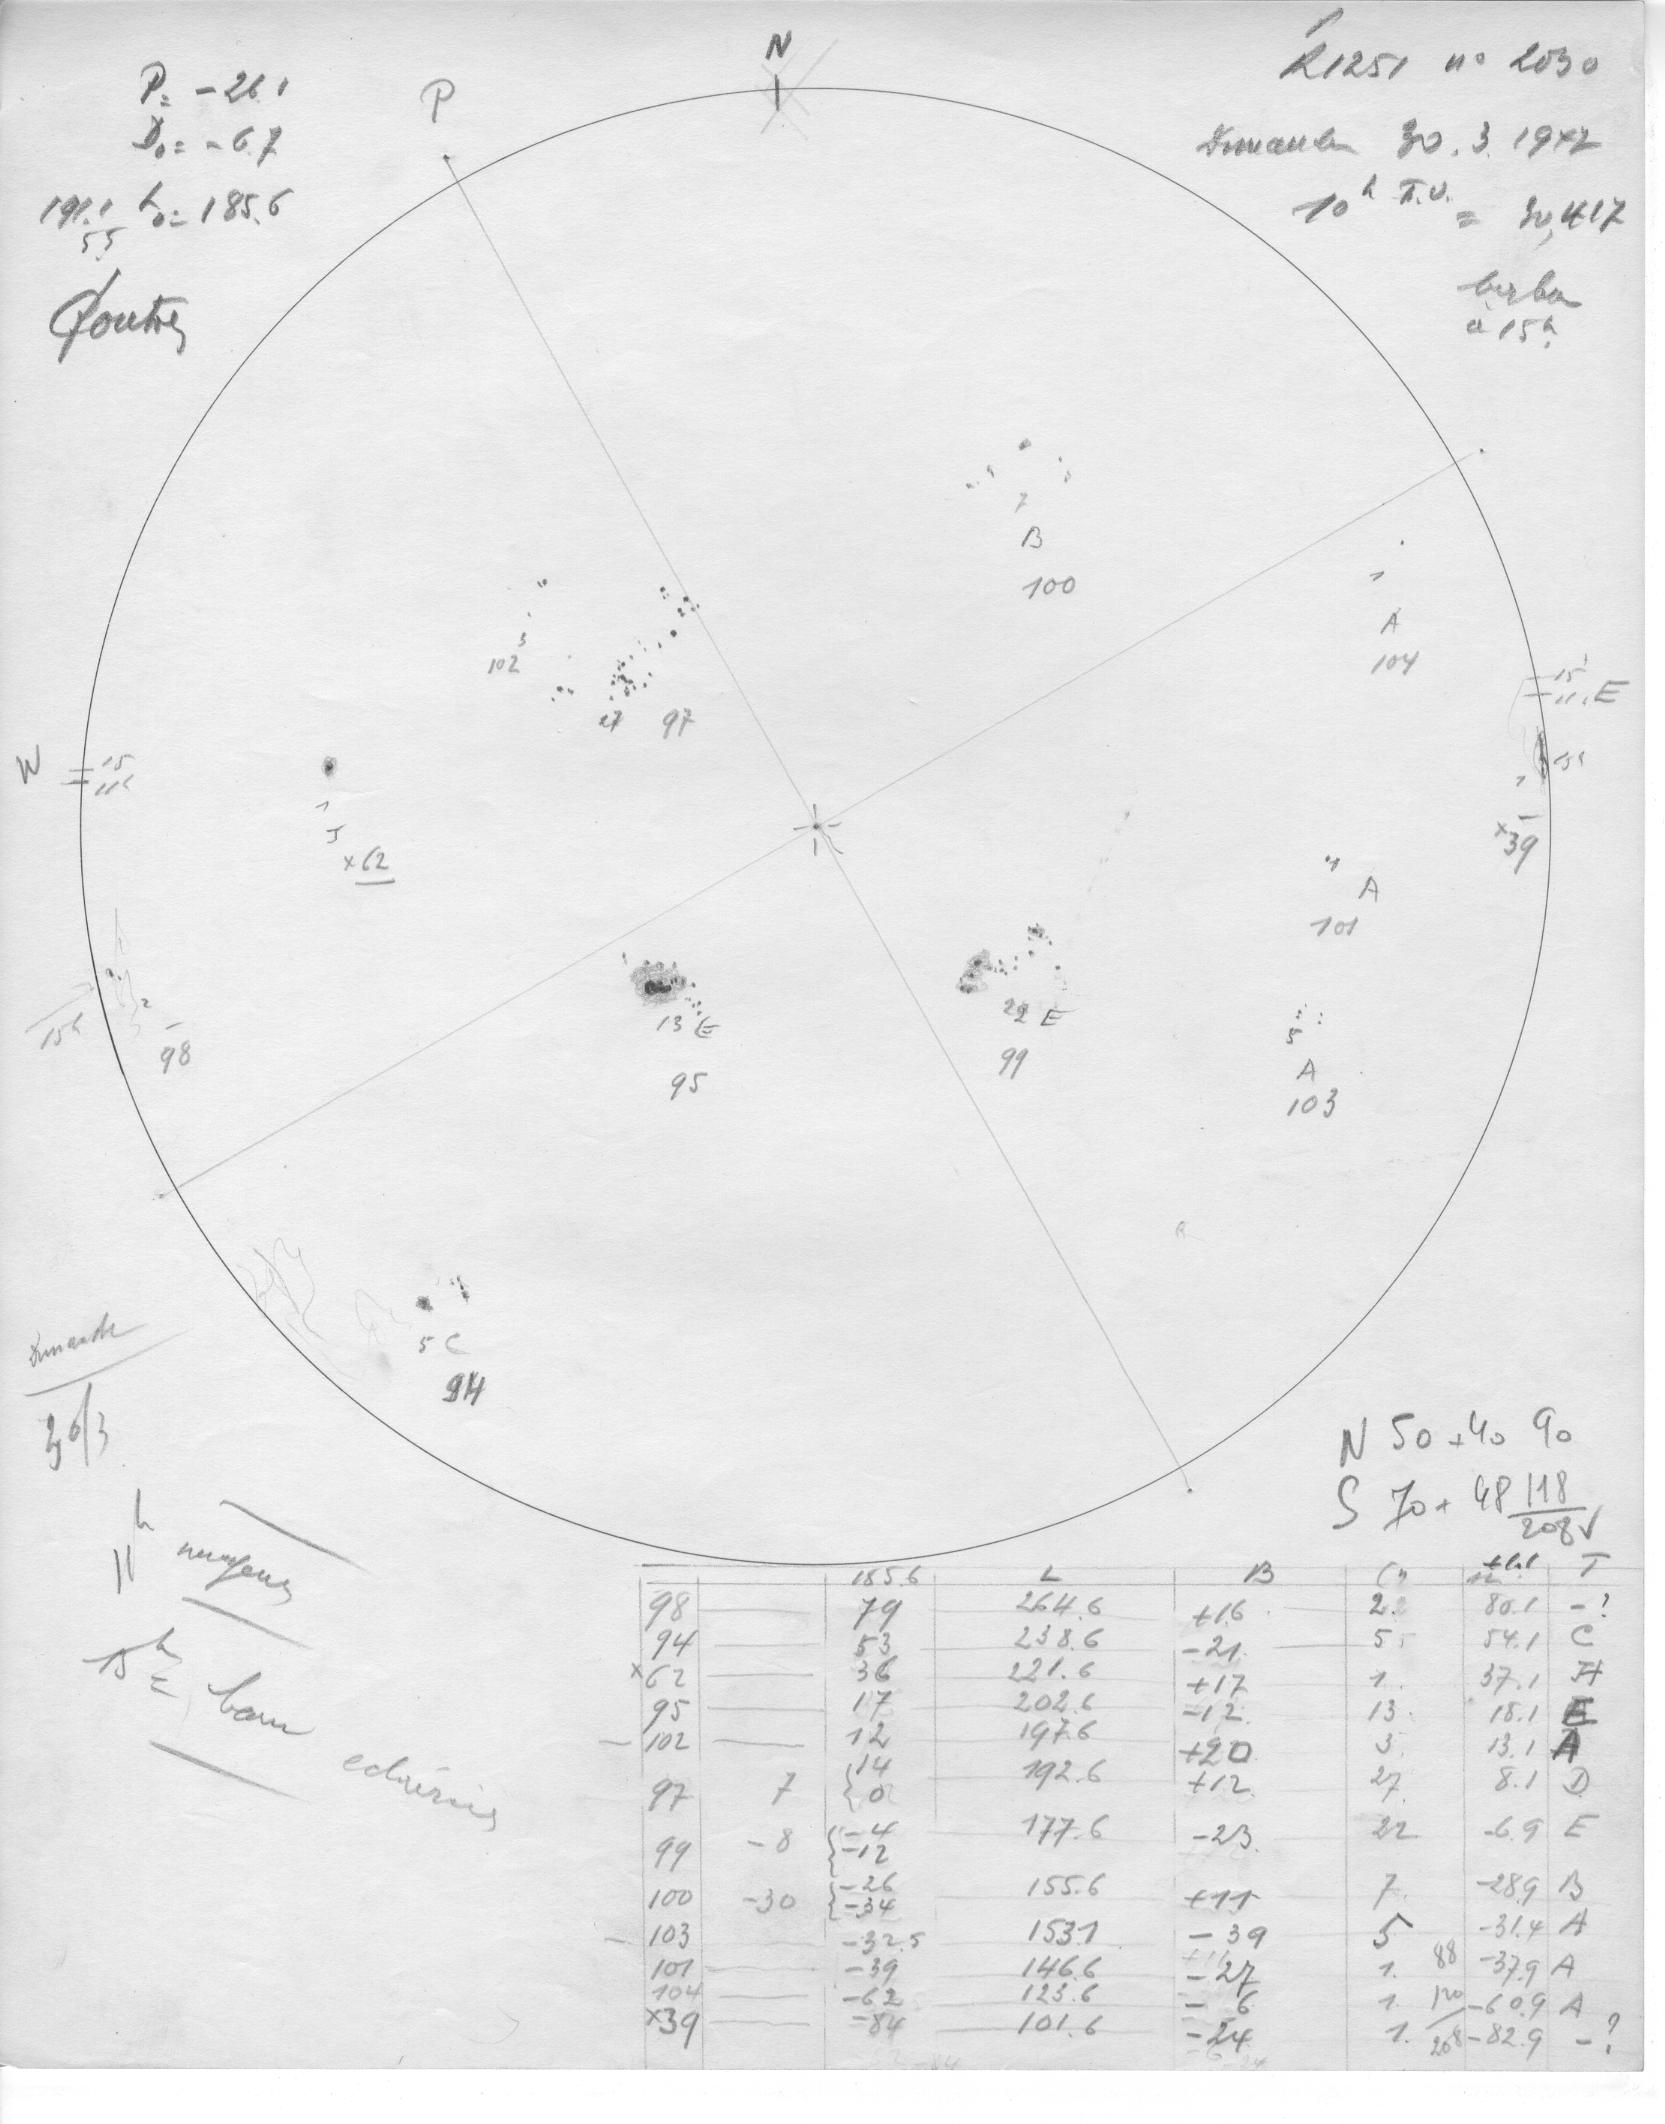 P= -26.1
D₀= -6.7
191.1 L₀= 185.6
5.5
P
N
R1251 n° 2030
Dimanche 30.3.1947
10h T.U. = 30,417
à 15h.
7
B
100
1
A
104
3
102
27 97
W 15
11h
15
11h E
1
J
x62
15h
1
x39
A
101
2
98
15h
13 E
95
22 E
99
5
A
103
5 C
94
Dimanche
30/3
N 50+40 90
S 70+48 118
208 √
11h nuageux
15h
éclaircies
185.6 L B T
98 79 264.6 +16 2 80.1 -?
94 53 238.6 -21 5 54.1 C
x62 36 221.6 +17 1 37.1 H
95 17 202.6 -12 13 18.1 E
102 12 197.6 +20 3 13.1 A
97 7 {14 0 192.6 +12 27 8.1 D
99 -8 {-4 -12 177.6 -23 22 -6.9 E
100 -30 {-26 -34 155.6 +11 7 -28.9 B
103 -32.5 153.1 -39 5 -31.4 A
101 -39 146.6 -27 1 88 -37.9 A
104 -62 123.6 -6 1 120 -60.9 A
x39 -84 101.6 -24 1 208 -82.9 -?